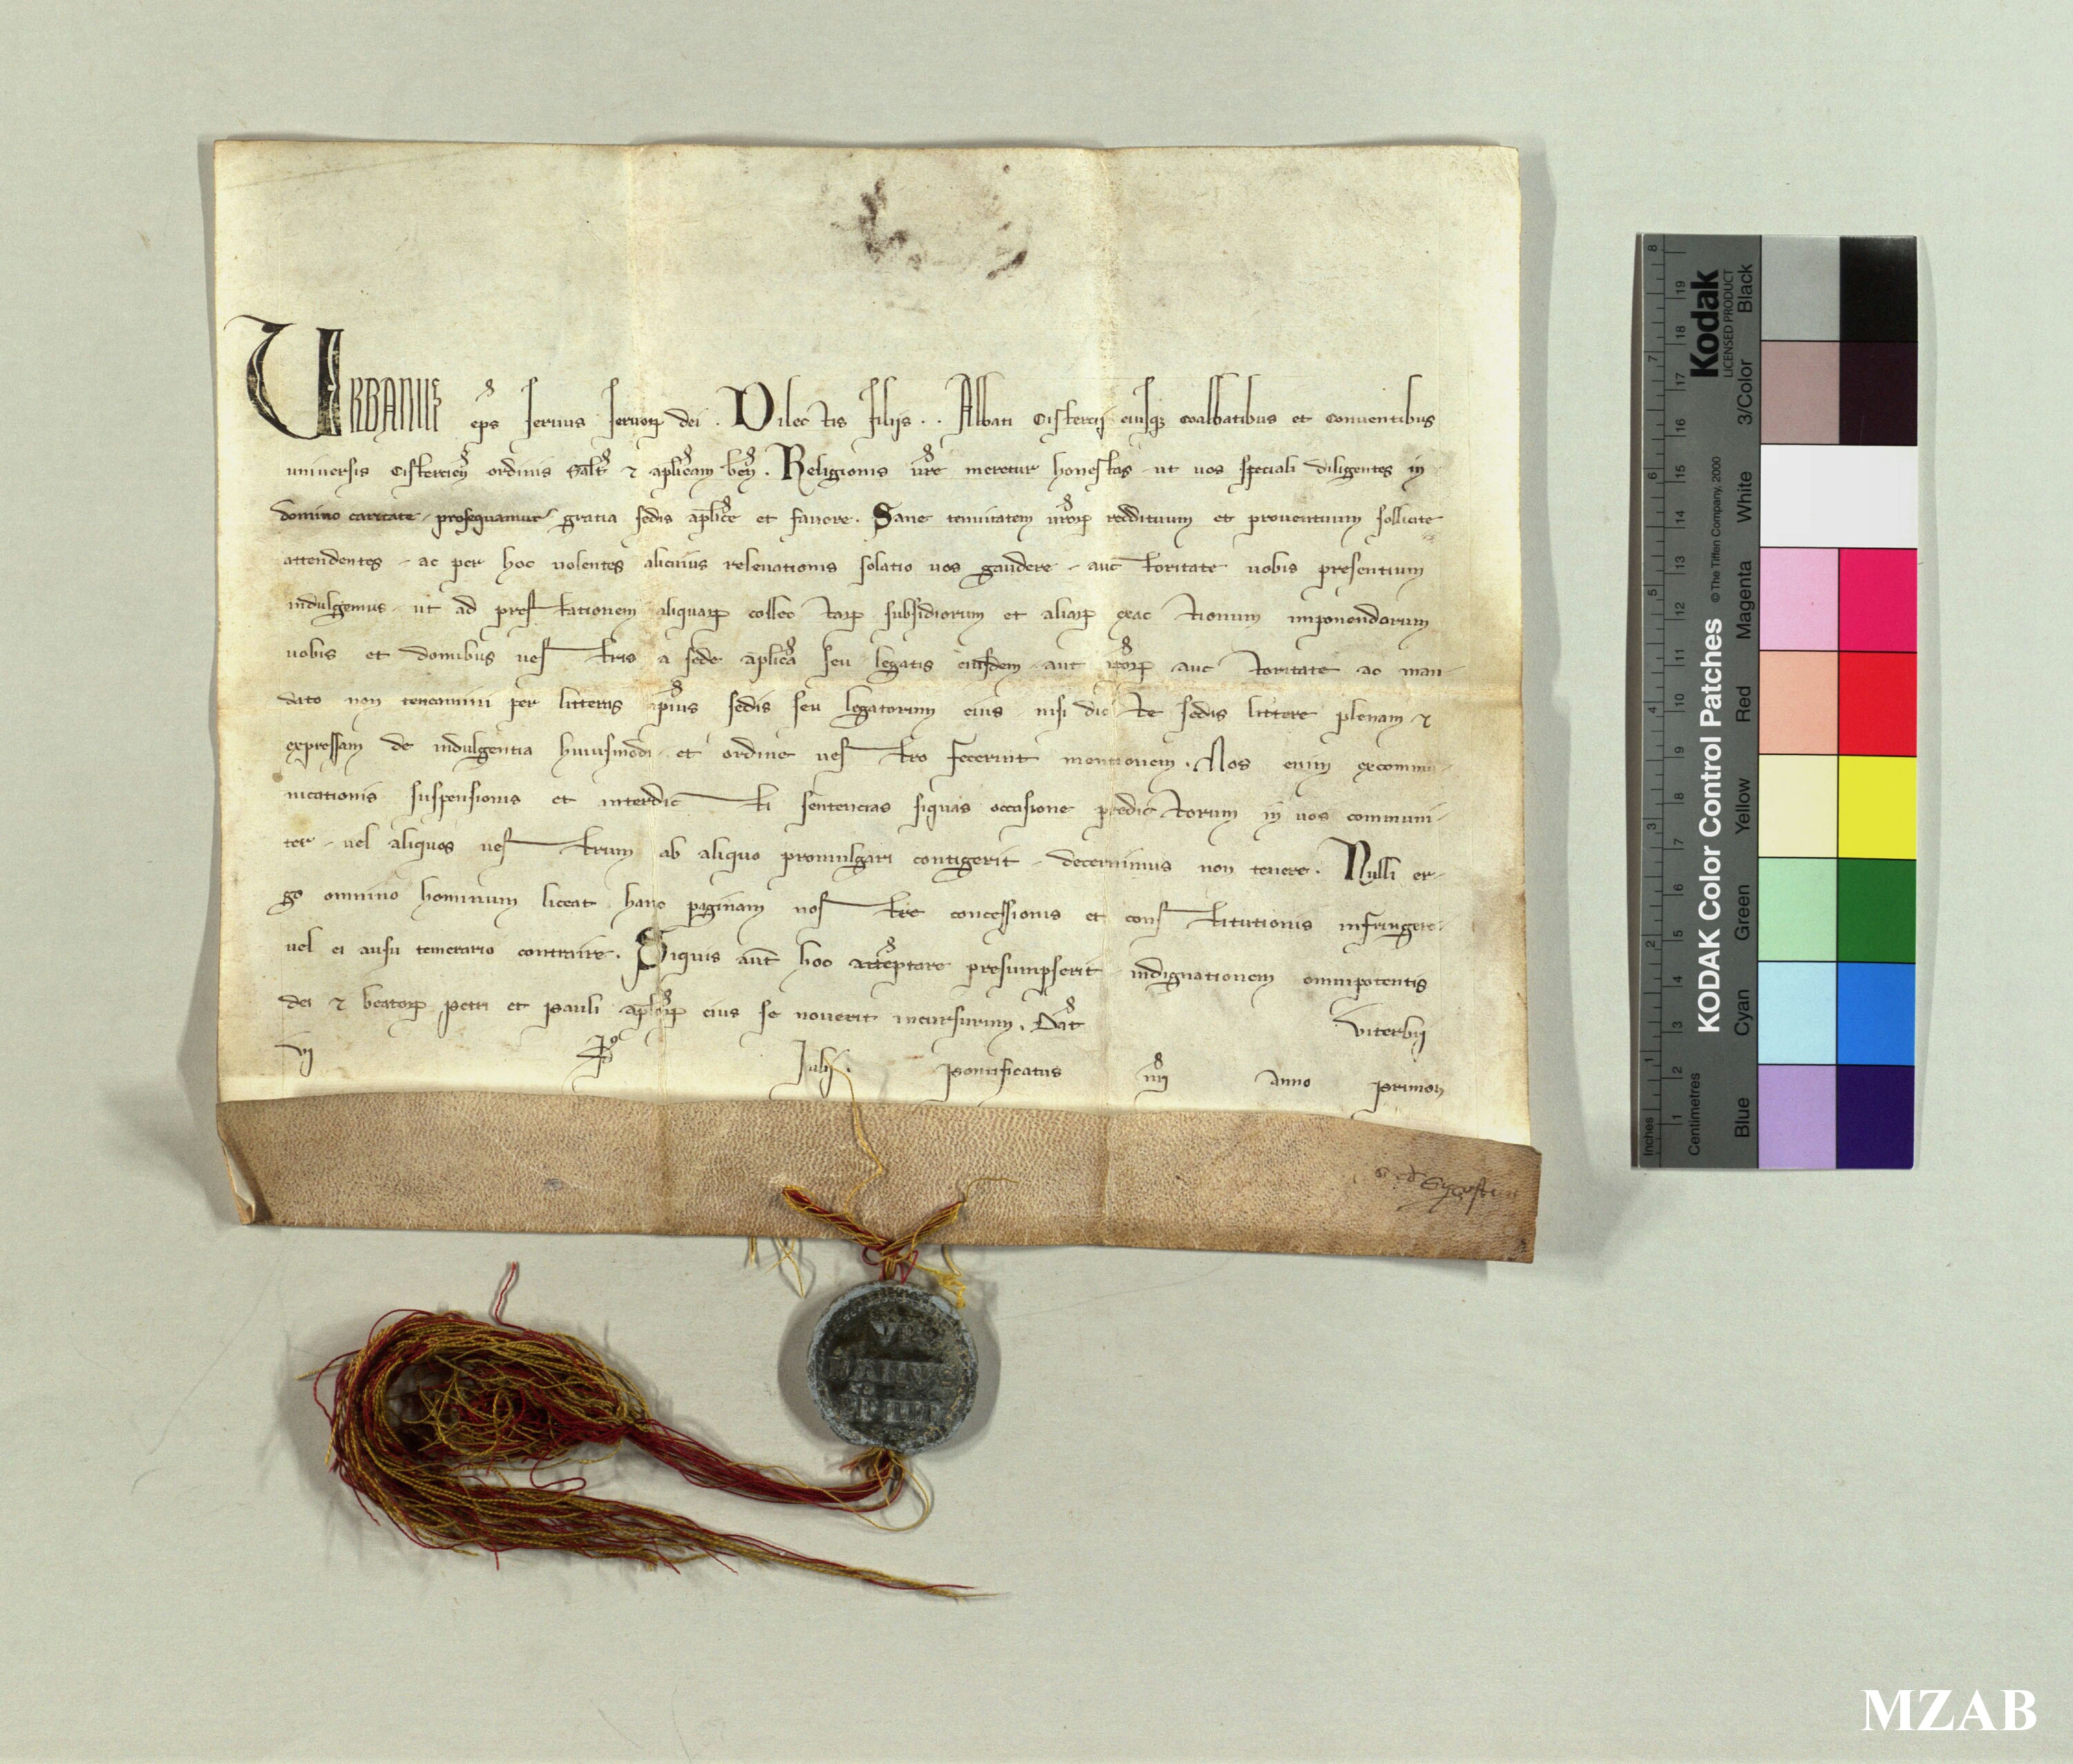 URBANUS ep̄s servus servoꝝ dei. Dilectis filijs.. Abbati Cistercij eiusqꝫ coabbatibus et conventibus
universis Cistercieñ ordinis salt̄ ⁊ apl̄icam beñ. Religionis vr̄e meretur honestas ut vos speciali diligentes in
domino caritate prosequamur gratia sedis apl̄ice et favore. Sane tenuitatem vr̄oꝝ reddituum et proventuum sollicite
attendentes ac per hoc volentes alicuius relevationis solatio vos gaudere auctoritate vobis presentium
indulgemus ut ad prestationem aliquaꝝ collectaꝝ subsidiorum et aliaꝝ exactionum imponendarum
vobis et domibus vestris a sede apl̄ica seu legatis eiusdem aut ip̄oꝝ auctoritate ac man-
dato non teneamini per litteras ip̄ius sedis seu legatorum eius nisi dicte sedis littere plenam ⁊
expressam de indulgentia huiusmodi et ordine vestro fecerint mentionem. Nos enim excommu-
nicationis suspensionis et interdicti sentencias siquas occasione predictorum in vos communi-
ter vel aliquos vestrum ab aliquo promulgari contigerit decernimus non tenere. Nulli er-
go omnino hominum liceat hanc paginam nostre concessionis et constitutionis infringere
vel ei ausu temerario contraire. Siquis aut̄ hoc attēptare presumpserit indignationem omnipotentis
dei ⁊ beatoꝝ Petri et Pauli apl̄oꝝ eius se noverit incursurum. Dat̄ Viterbij
vj Iulij. Pontificatus nr̄i anno Primo
VR
BANVS
PP IIII
8
7
6
5
4
3
2
Inches 1
19
18
17
16
15
14
13
12
11
10
9
8
7
6
5
4
3
2
1
Centimetres
Kodak
LICENSED PRODUCT
© The Tiffen Company, 2000
KODAK Color Control Patches
Black
3/Color
White
Magenta
Red
Yellow
Green
Cyan
Blue
MZAB